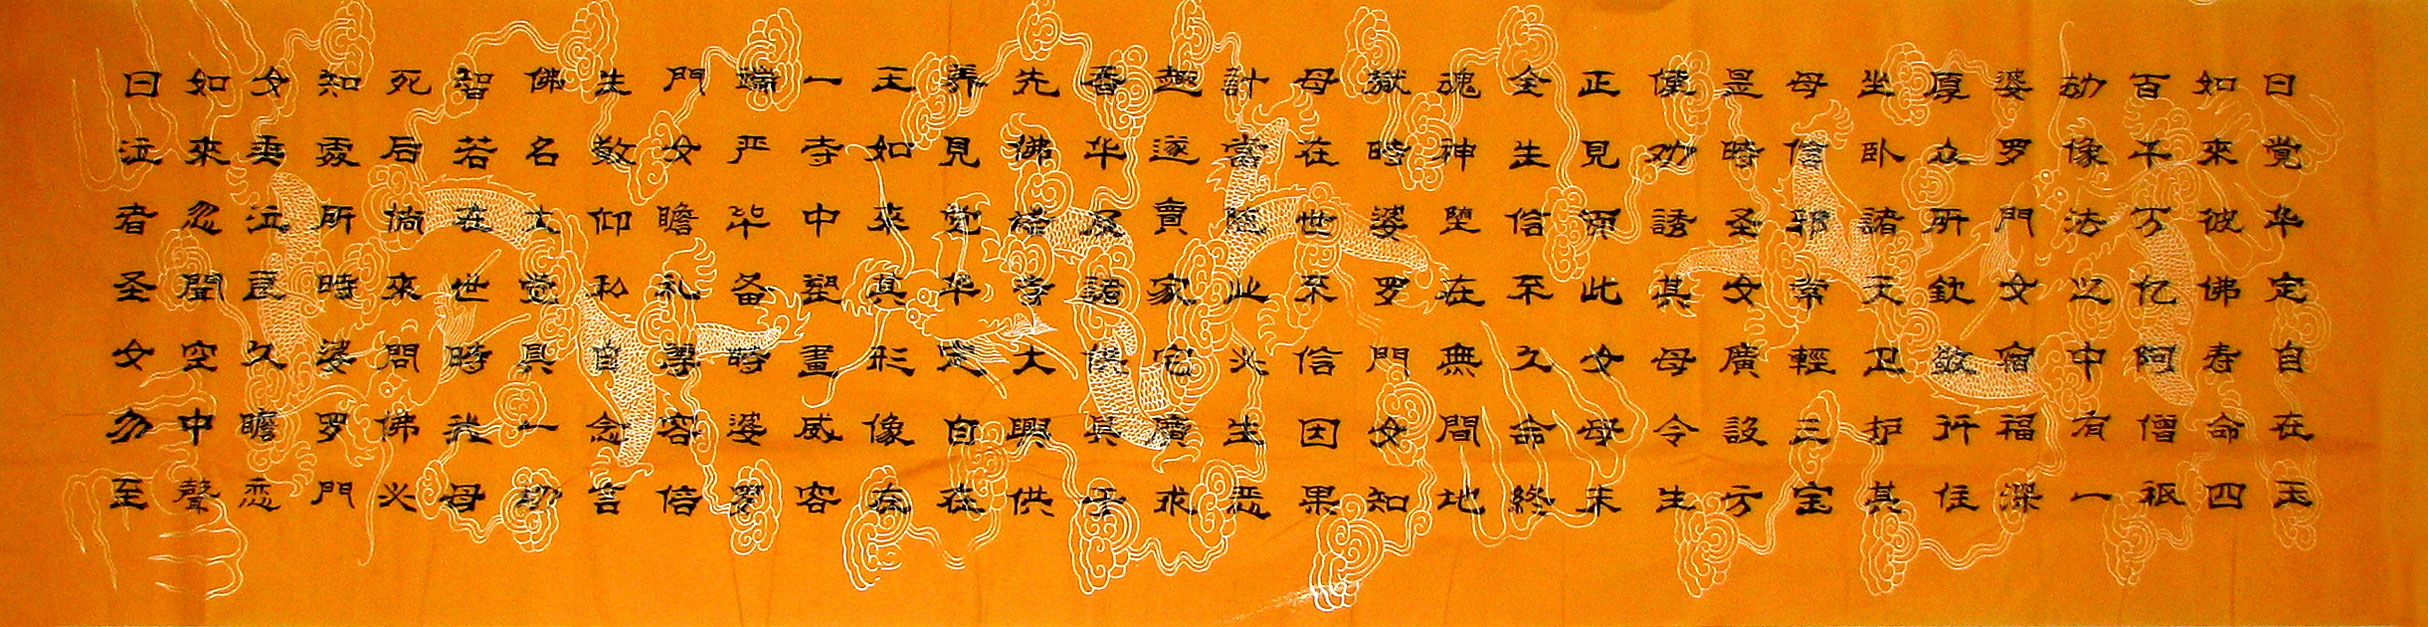 曰觉华定自在王
如來彼佛寿命四
百千万亿阿僧祇
劫像法之中有一
婆罗門女宿福深
厚众所欽敬行住
坐卧諸天卫护其
母信邪常輕三宝
是時圣女廣設方
便劝誘其母令生
正見而此女母未
全生信不久命終
魂神堕在無間地
獄時婆罗門女知
母在世不信因果
計當随业必生恶
趣遂賣家宅廣求
香华及諸供具于
先佛塔寺大興供
养見觉华定自在
王如來其形像在
一寺中塑畫威容
端严毕备時婆罗
門女瞻礼尊容倍
生敬仰私自念言
佛名大觉具一切
智若在世時我母
死后倘來問佛必
知處所時婆罗門
女垂泣良久瞻恋
如來忽聞空中聲
曰泣者圣女勿至